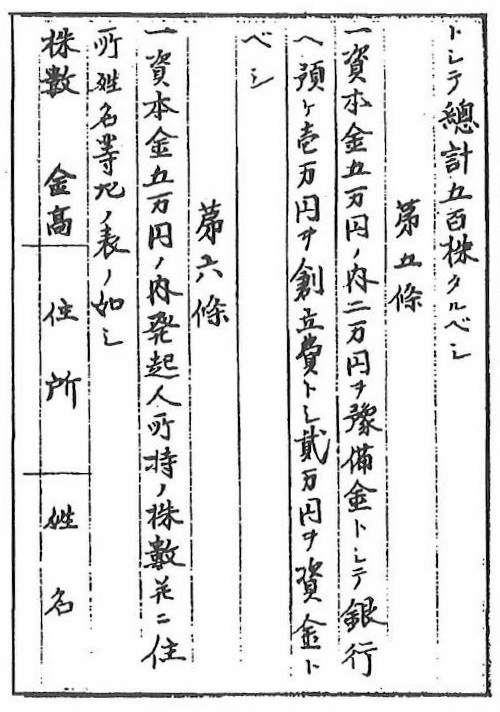 トシテ總計五百株タルベシ
第五條
一資本金五万円ノ内二万円ヲ豫備金トシテ銀行
ヘ預ケ壱万円ヲ創立費トシ貳万円ヲ資金ト
ベシ
第六條
一資本金五万円ノ内発起人所持ノ株數並ニ住
所姓名等左ノ表ノ如シ
株數 金高 住所 姓名